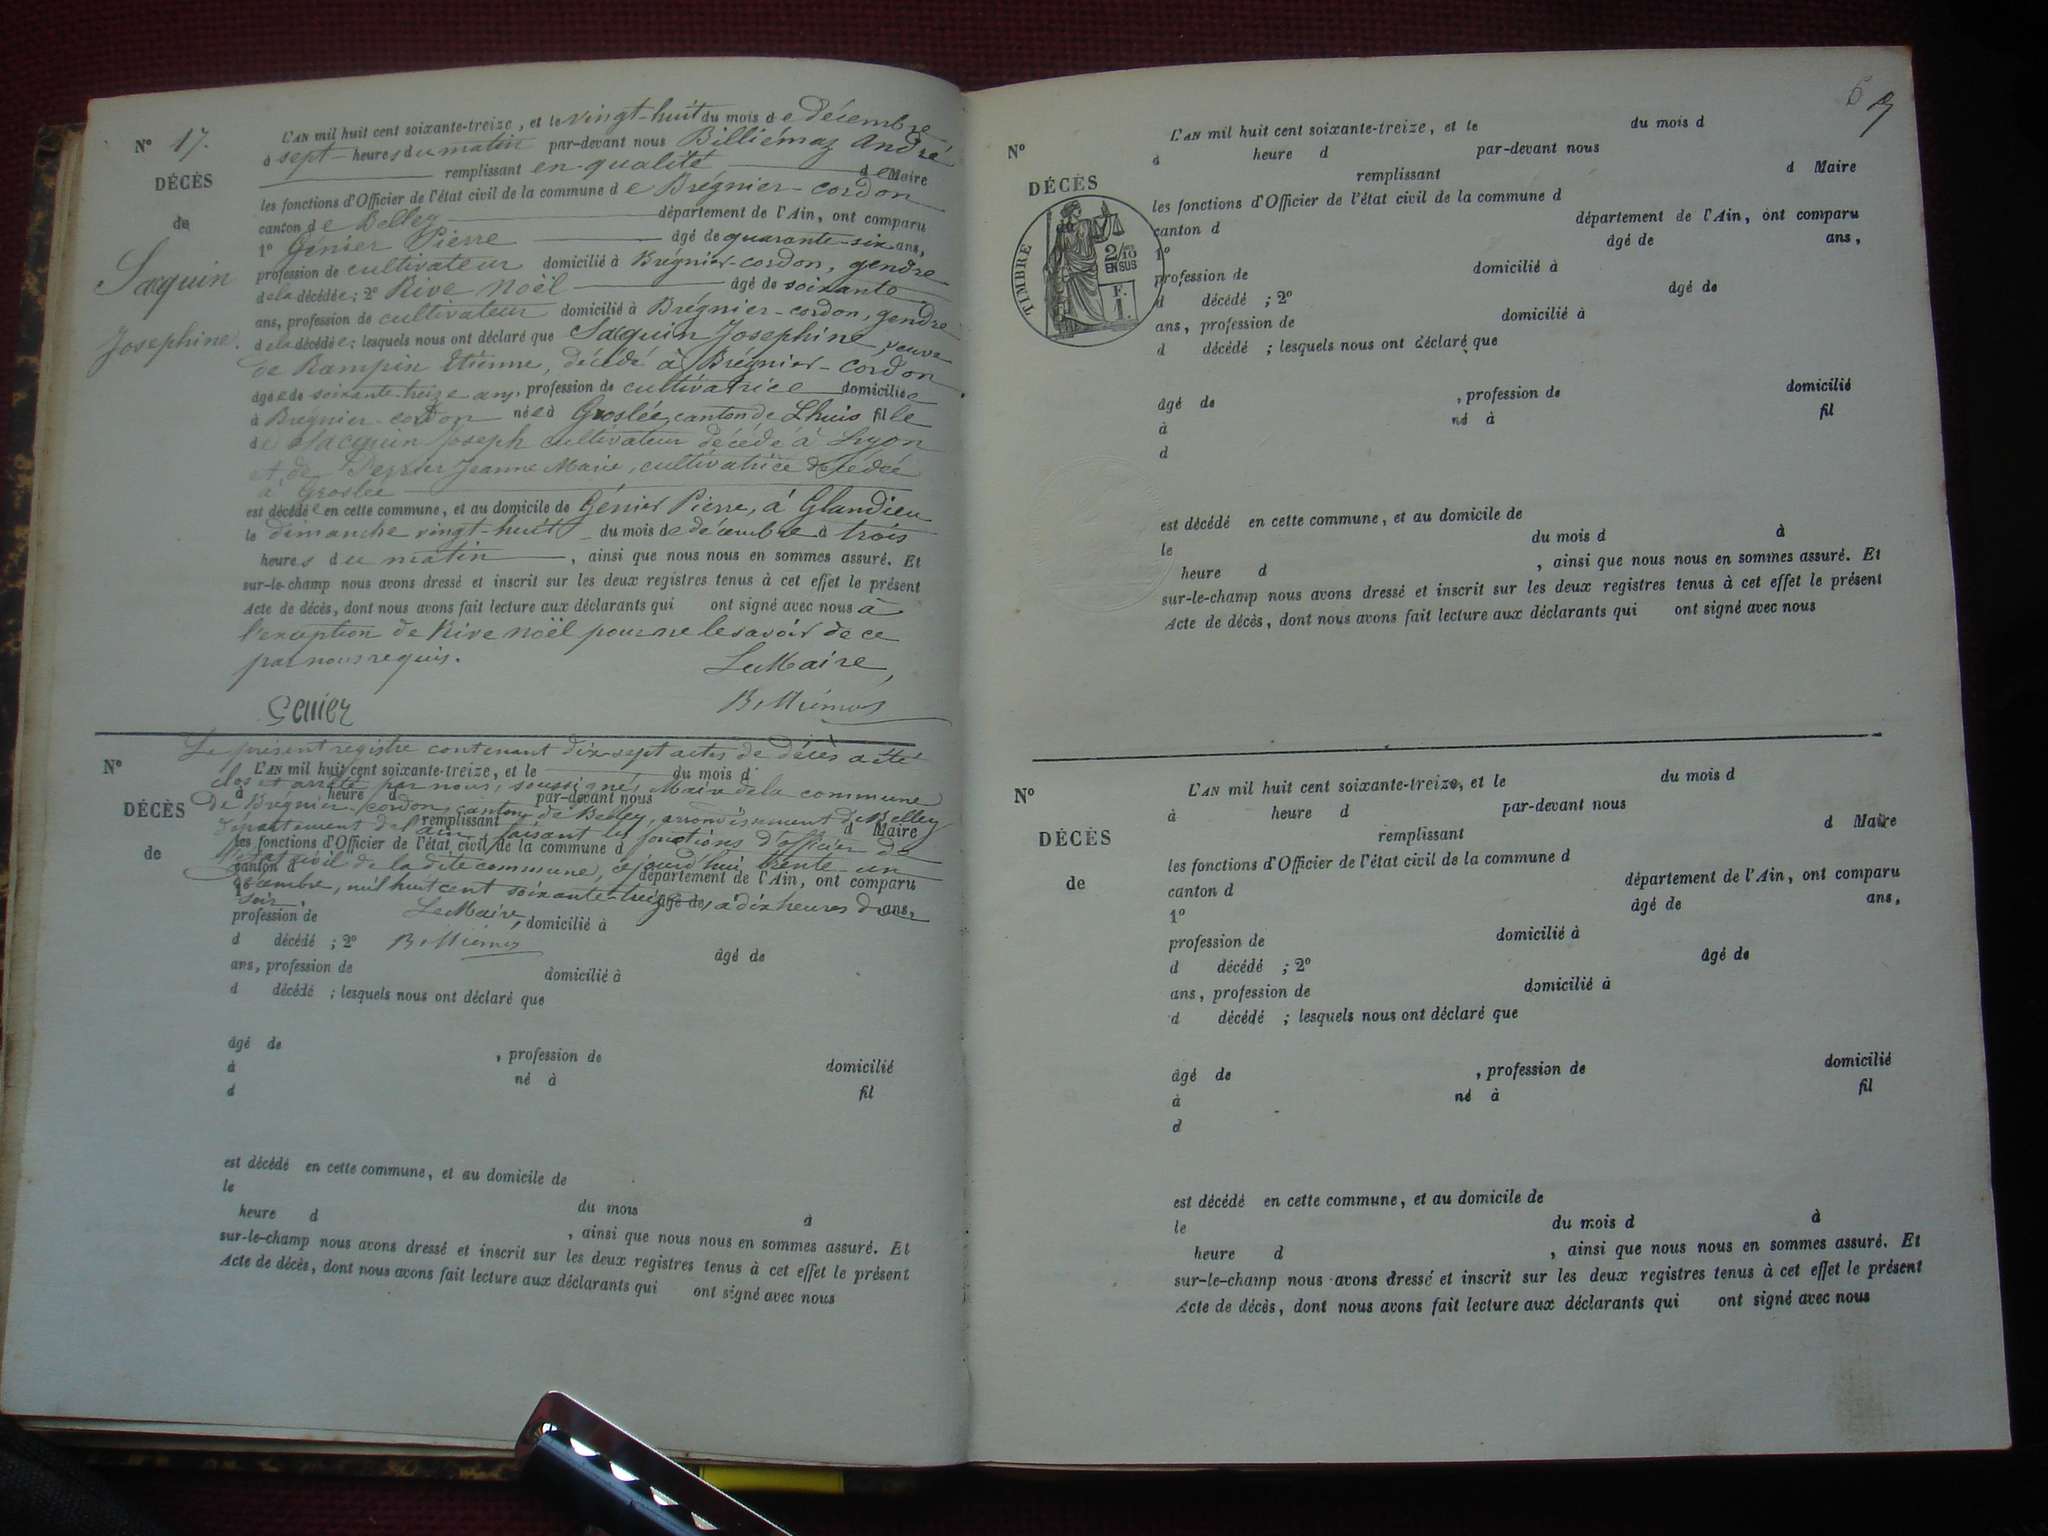 N° 17.
DÉCÈS
de
Saquin
Josephine.
L'AN mil huit cent soixante-treize, et le vingt-huit du mois de décembre
à sept heures du matin par-devant nous Billiémaz André
remplissant en qualité de Maire
les fonctions d'Officier de l'état civil de la commune de Brégnier-cordon
canton de Belley département de l'Ain, ont comparu
1° Génier Pierre âgé de quarante-six ans,
profession de cultivateur domicilié à Brégnier-cordon, gendre
de la décédée ; 2° Rive Noël âgé de soixante
ans, profession de cultivateur domicilié à Brégnier-cordon, gendre
de la décédée ; lesquels nous ont déclaré que Saquin Josephine, veuve
de Rampin Etienne, décédé à Brégnier-cordon
âgée de soixante-treize ans, profession de cultivatrice domiciliée
à Brégnier-cordon née à Groslée, canton de Lhuis fille
de Sacquin Joseph cultivateur décédé à Lyon
et de Jeanne Marie, cultivatrice décédée
à Groslée
est décédée en cette commune, et au domicile de Génier Pierre, à Glandieu
le dimanche vingt-huit du mois de décembre à trois
heures du matin , ainsi que nous nous en sommes assuré. Et
sur-le-champ nous avons dressé et inscrit sur les deux registres tenus à cet effet le présent
Acte de décès, dont nous avons fait lecture aux déclarants qui ont signé avec nous à
l'exception de Rive Noël pour ne le savoir de ce
par nous requis.
Le Maire,
Génier
Billiémaz
Le présent registre contenant dix-sept actes de décès a été
clos et arrêté par nous, soussigné, Maire de la commune
de Brégnier-cordon, canton de Belley, arrondissement de Belley
département de l'ain, faisant les fonctions d'officier de
l'état civil de la dite commune, ce jourd'hui trente-un
décembre, mil huit cent soixante-treize, à dix heures du
soir.
Le Maire,
Billiémaz
N°
DÉCÈS
de
L'AN mil huit cent soixante-treize, et le du mois d
à heure d par-devant nous
remplissant d Maire
les fonctions d'Officier de l'état civil de la commune d
canton d département de l'Ain, ont comparu
1° âgé de ans,
profession de domicilié à
d décédé ; 2° âgé de
ans, profession de domicilié à
d décédé ; lesquels nous ont déclaré que
âgé de , profession de domicilié
à né à fil
d
est décédé en cette commune, et au domicile de
le du mois à
heure d , ainsi que nous nous en sommes assuré. Et
sur-le-champ nous avons dressé et inscrit sur les deux registres tenus à cet effet le présent
Acte de décès, dont nous avons fait lecture aux déclarants qui ont signé avec nous
6 7
N°
DÉCÈS
TIMBRE
2/10
EN SUS
F.
1.
L'AN mil huit cent soixante-treize, et le du mois d
à heure d par-devant nous
remplissant d Maire
les fonctions d'Officier de l'état civil de la commune d
canton d département de l'Ain, ont comparu
1° âgé de ans,
profession de domicilié à
d décédé ; 2° âgé de
ans, profession de domicilié à
d décédé ; lesquels nous ont déclaré que
âgé de , profession de domicilié
à né à fil
d
est décédé en cette commune, et au domicile de
le du mois d à
heure d , ainsi que nous nous en sommes assuré. Et
sur-le-champ nous avons dressé et inscrit sur les deux registres tenus à cet effet le présent
Acte de décès, dont nous avons fait lecture aux déclarants qui ont signé avec nous
N°
DÉCÈS
de
L'AN mil huit cent soixante-treize, et le du mois d
à heure d par-devant nous
remplissant d Maire
les fonctions d'Officier de l'état civil de la commune d
canton d département de l'Ain, ont comparu
1° âgé de ans,
profession de domicilié à
d décédé ; 2° âgé de
ans, profession de domicilié à
d décédé ; lesquels nous ont déclaré que
âgé de , profession de domicilié
à né à fil
d
est décédé en cette commune, et au domicile de
le du mois d à
heure d , ainsi que nous nous en sommes assuré. Et
sur-le-champ nous avons dressé et inscrit sur les deux registres tenus à cet effet le présent
Acte de décès, dont nous avons fait lecture aux déclarants qui ont signé avec nous